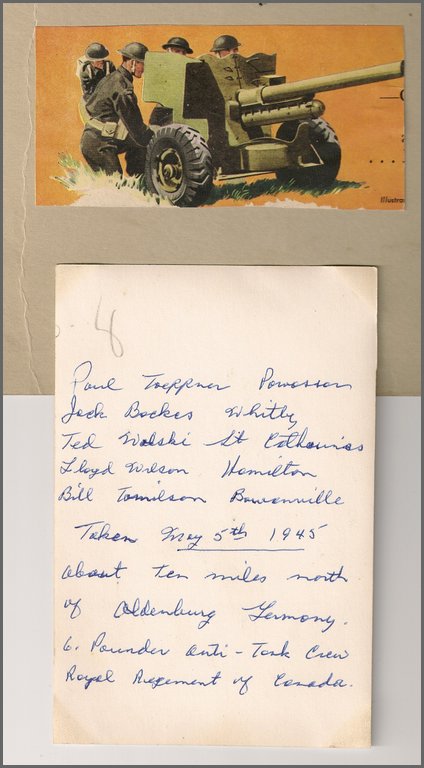 Illustra
8
Paul Toeppner Powassan
Jack Backes Whitby
Ted Wolski St Catharines
Lloyd Wilson Hamilton
Bill Tomilson Bowmanville
Taken May 5th 1945
about ten miles north
of Oldenburg Germany.
6. Pounder Anti-Tank Crew
Royal Regiment of Canada.